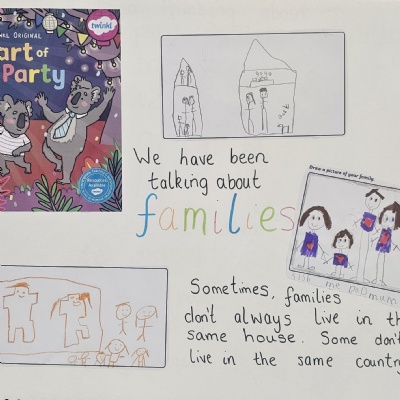 twinkl
KL ORIGINAL
art of
Party
Resources
Available
We have been
talking about
families
Draw a picture of your family.
me Dad mum
Sometimes, families
don't always live in th
same house. Some don't
live in the same country